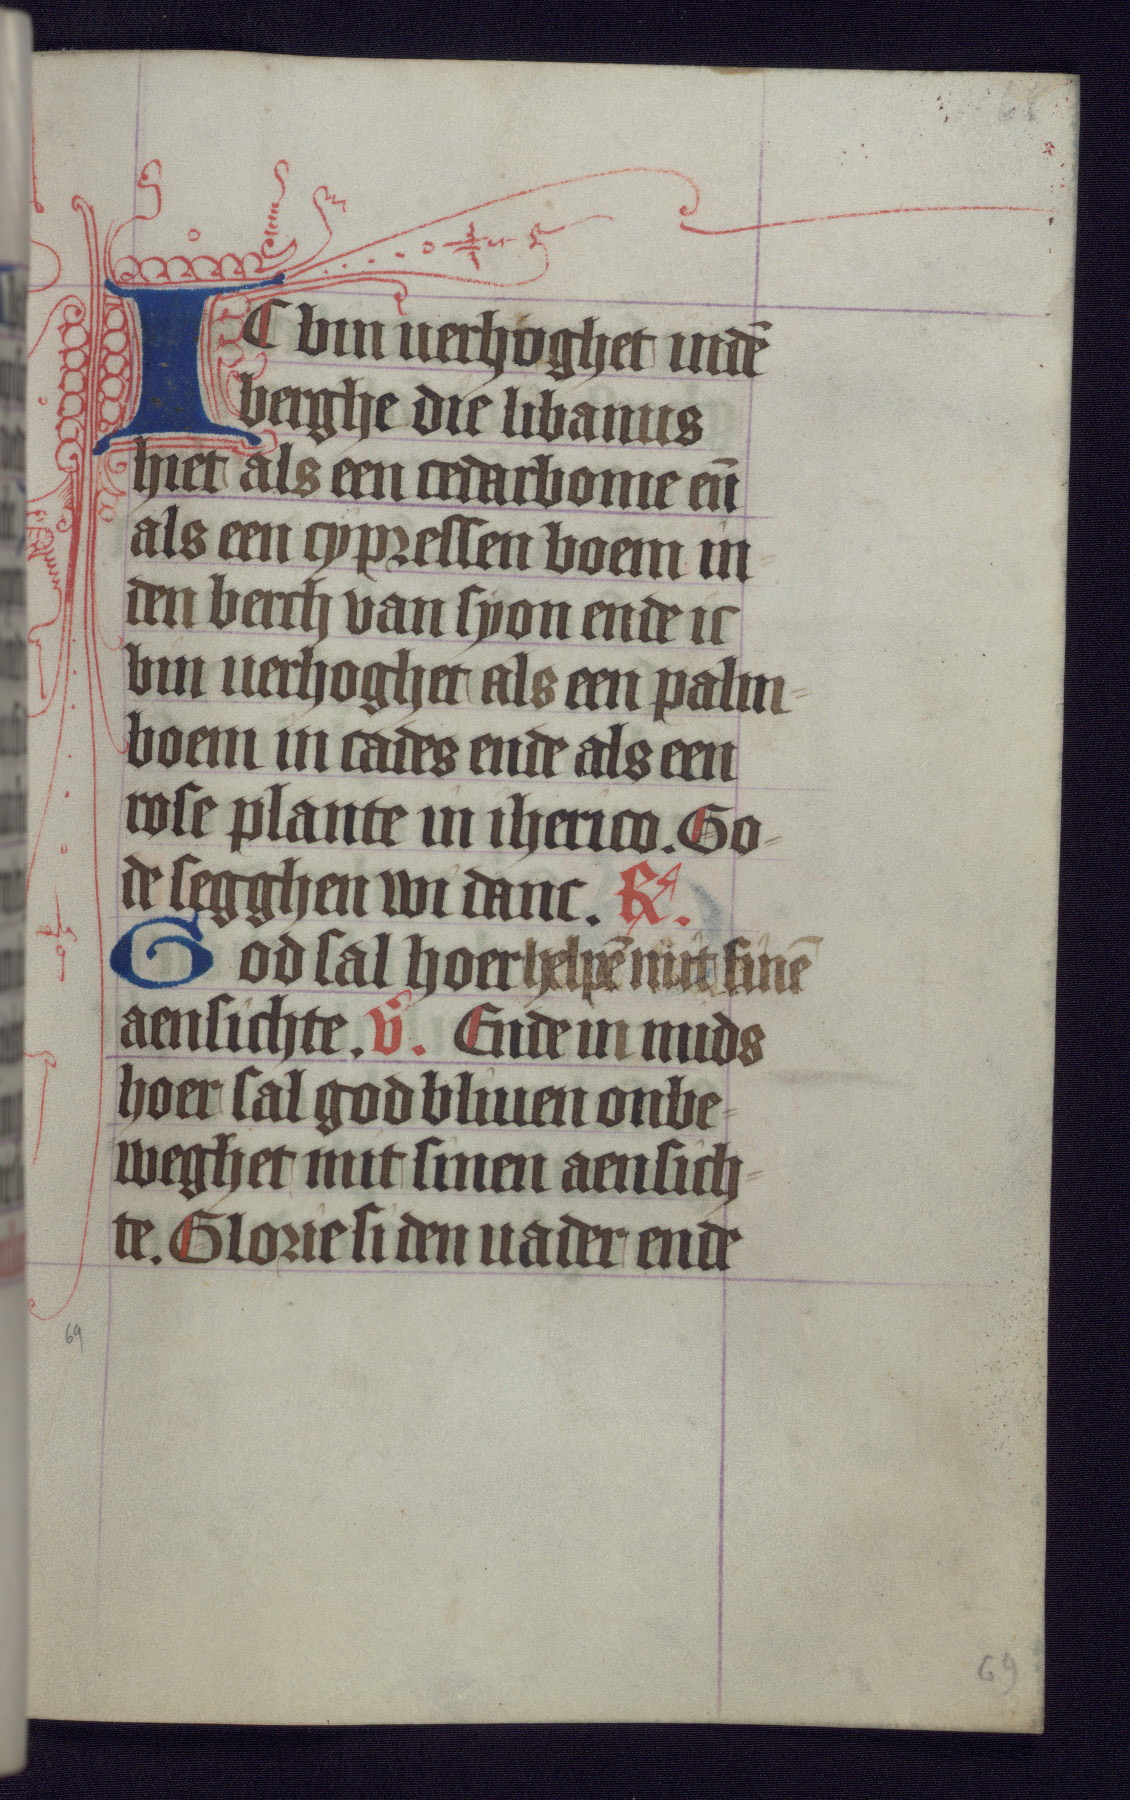 IC bin uerhoghet indē
berghe die libanus
hiet als een cedarbome eñ
als een cypressen boem in
den berch van syon ende ic
bin uerhoghet als een palm=
boem in cades ende als een
rose plante in iherico. Go=
de segghen wi danc. R.
God sal hoer helpē mit sinē
aensichte. v. Ende in mids
hoer sal god bliuen onbe=
weghet mit sinen aensich=
te. Glorie si den uader ende
69
69